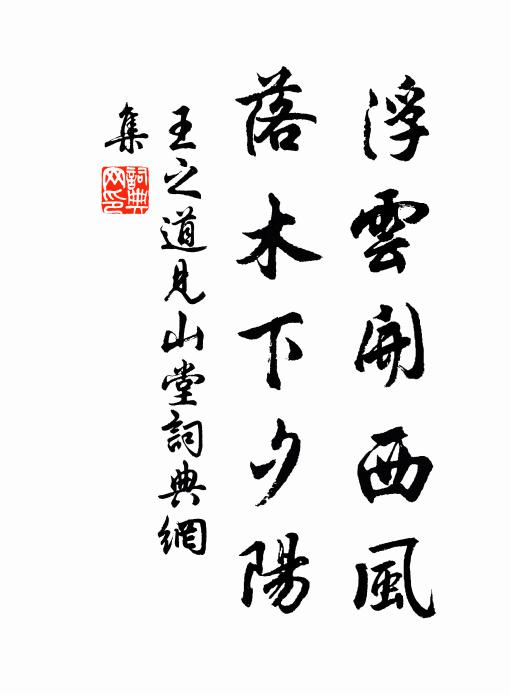 浮雲開西風
落木下夕陽
王之道見山堂詞典網
集
詞典網印